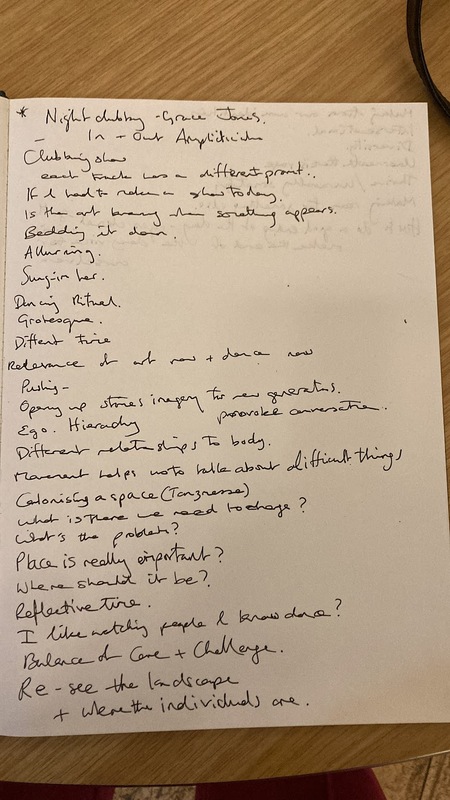 * Nightclubbing - Grace Jones.
- In + Out
Clubbing show
each track has a different
If I had to make a show today.
Is the art when something appears.
Bedding it down.
Alluring.
Sung-in her.
Dancing Ritual.
Grotesque.
Different time
Relevance of art now + dance now
Pushing -
Opening up stories imagery for new generations.
Ego. Hierarchy provoke conversation.
Different relationships to body.
Movement helps us to talk about difficult things
Colonising a space
What is there we need to change?
What's the problem?
Place is really important?
Where should it be?
Reflective time.
I like watching people I know dance?
Balance of Care + Challenge.
Re-see the landscape
+ where the individuals are.